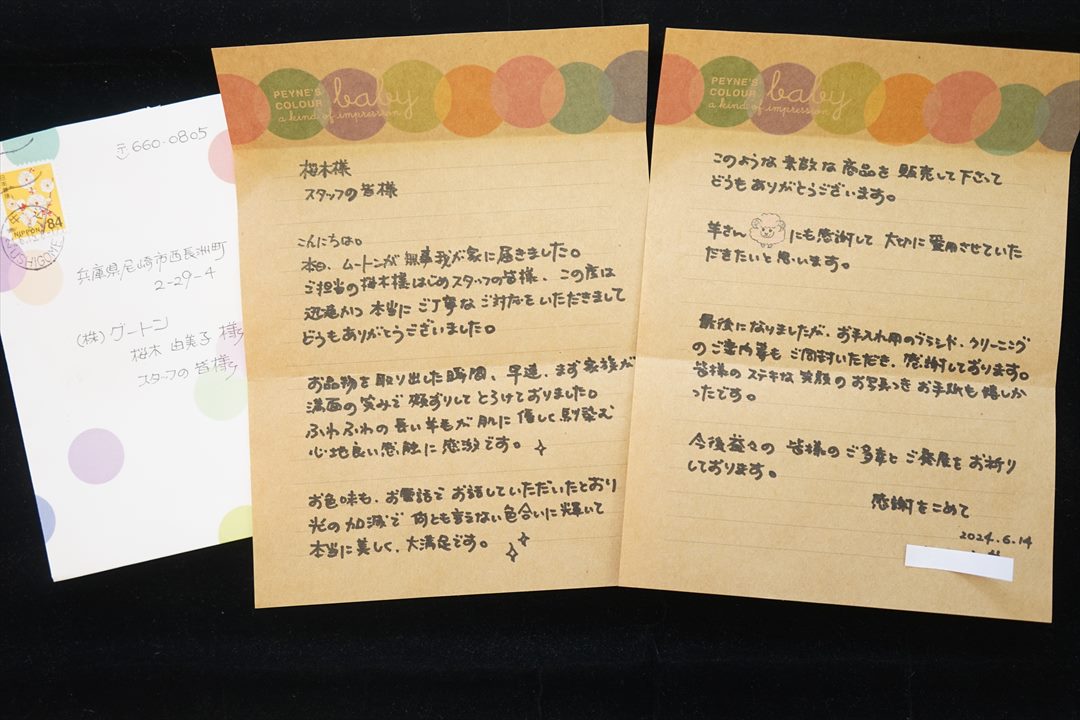 〒660-0805
兵庫県尼崎市西長洲町
2-29-4
(株)グートン
桜木 由美子 様
スタッフの皆様
日本郵便
NIPPON 84
PEYNE'S
COLOUR baby
a kind of impression
桜木様
スタッフの皆様
こんにちは。
本日、ムートンが無事我が家に届きました。
ご担当の桜木様はじめスタッフの皆様、この度は
迅速かつ本当にご丁寧なご対応をいただきまして
どうもありがとうございました。
お品物を取り出した瞬間、早速、まず家族が
満面の笑みで頬ずりしてとろけておりました。
ふわふわの長い羊毛が肌に優しく馴染む
心地良い感触に感激です。
お色味も、お電話でお話していただいたとおり
光の加減で何とも言えない色合いに輝いて
本当に美しく、大満足です。
PEYNE'S
COLOUR baby
a kind of impression
このような素敵な商品を販売して下さって
どうもありがとうございます。
羊さんにも感謝して大切に愛用させていた
だきたいと思います。
最後になりましたが、お手入れ用のブランド、クリーニング
のご案内等もご同封いただき、感謝しております。
皆様のステキな笑顔のお写真つきお手紙も嬉しか
ったです。
今後益々の皆様のご多幸とご発展をお祈り
しております。
感謝をこめて
2024.6.14